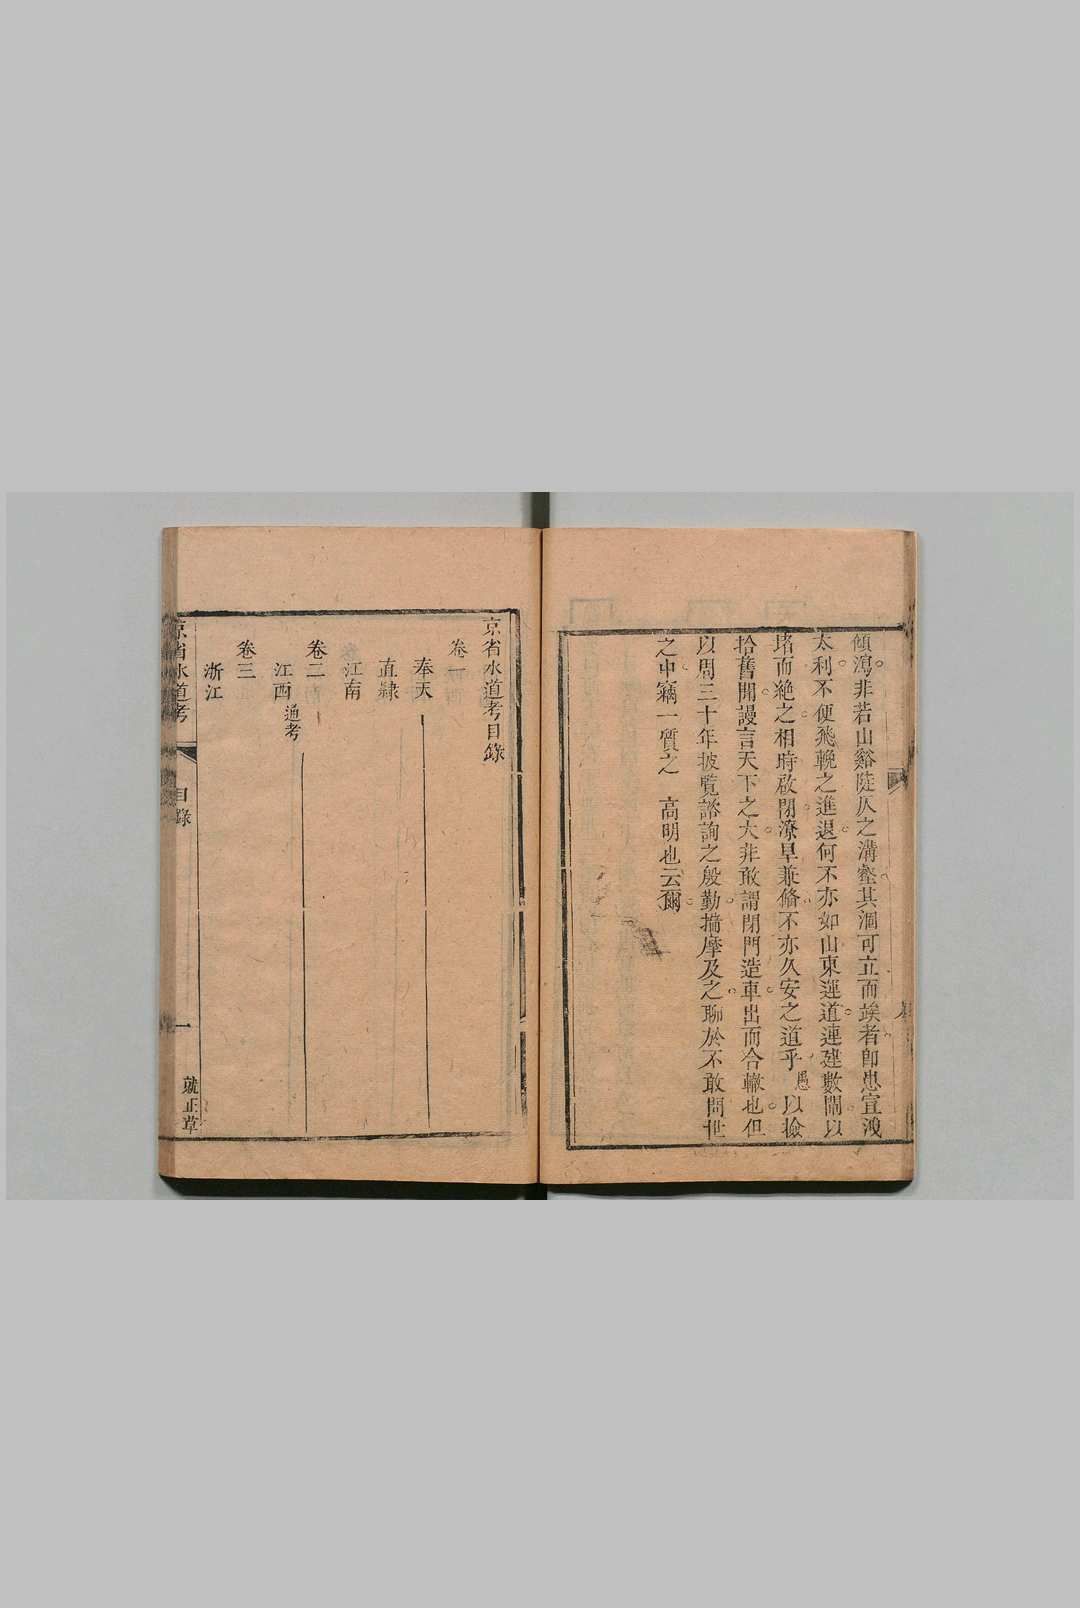 傾瀉非若山谿陡仄之溝壑其涸可立而竢者卽患宣洩
太利不便飛輓之進退何不亦如山東運道連建數閘以
堵而絶之相時啟閉潦旱兼脩不亦久安之道乎愚以撿
拾舊聞謾言天下之大非敢謂閉門造車出而合轍也但
以周三十年披覽諮詢之殷勤揣摩及之聊於不敢問世
之中竊一質之　高明也云爾
京省水道考目錄
卷一
奉天
直隸
江南
卷二
江西通考
卷三
浙江
京省水道考
目錄
一
就正草